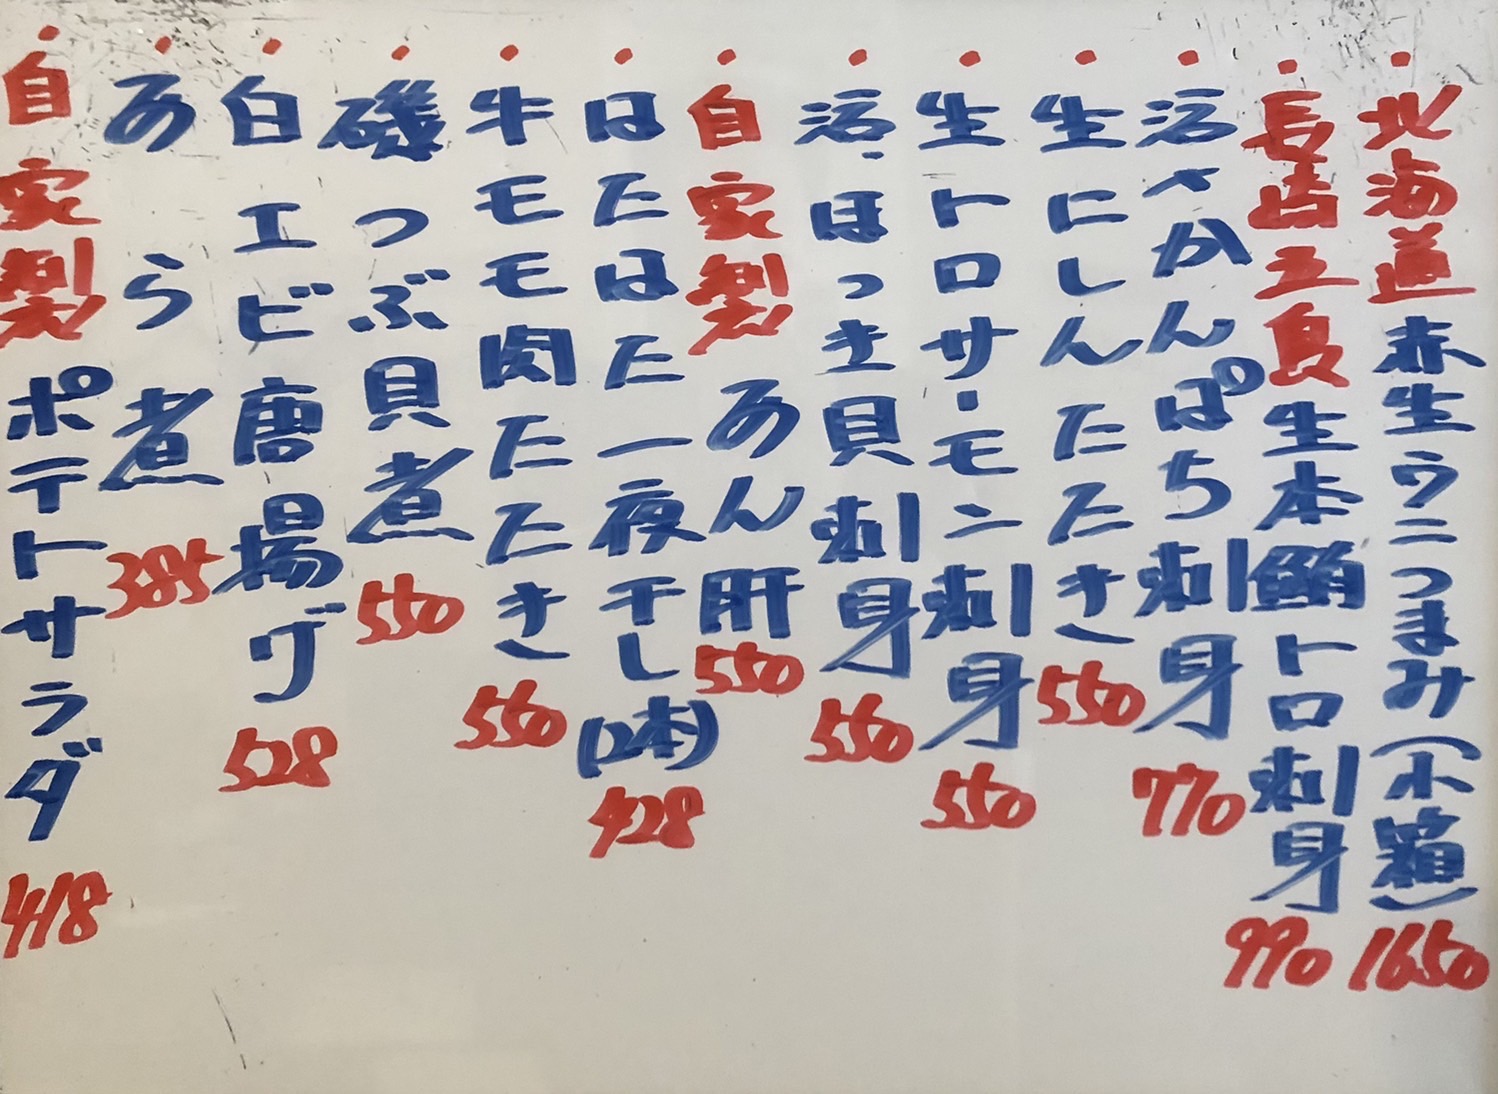 ・北海道赤生ウニつまみ(小箱)1650
・長崎五島生本鮪トロ刺身990
・活さかんぱち刺身770
・生にしんたたき550
・生トロサーモン刺身550
・活ほっき貝刺身550
・自家製あん肝550
・はたはた一夜干し(2本)428
・牛モモ肉たたき550
・磯つぶ貝煮550
・白エビ唐揚げ528
・あら煮385
・自家製ポテトサラダ418